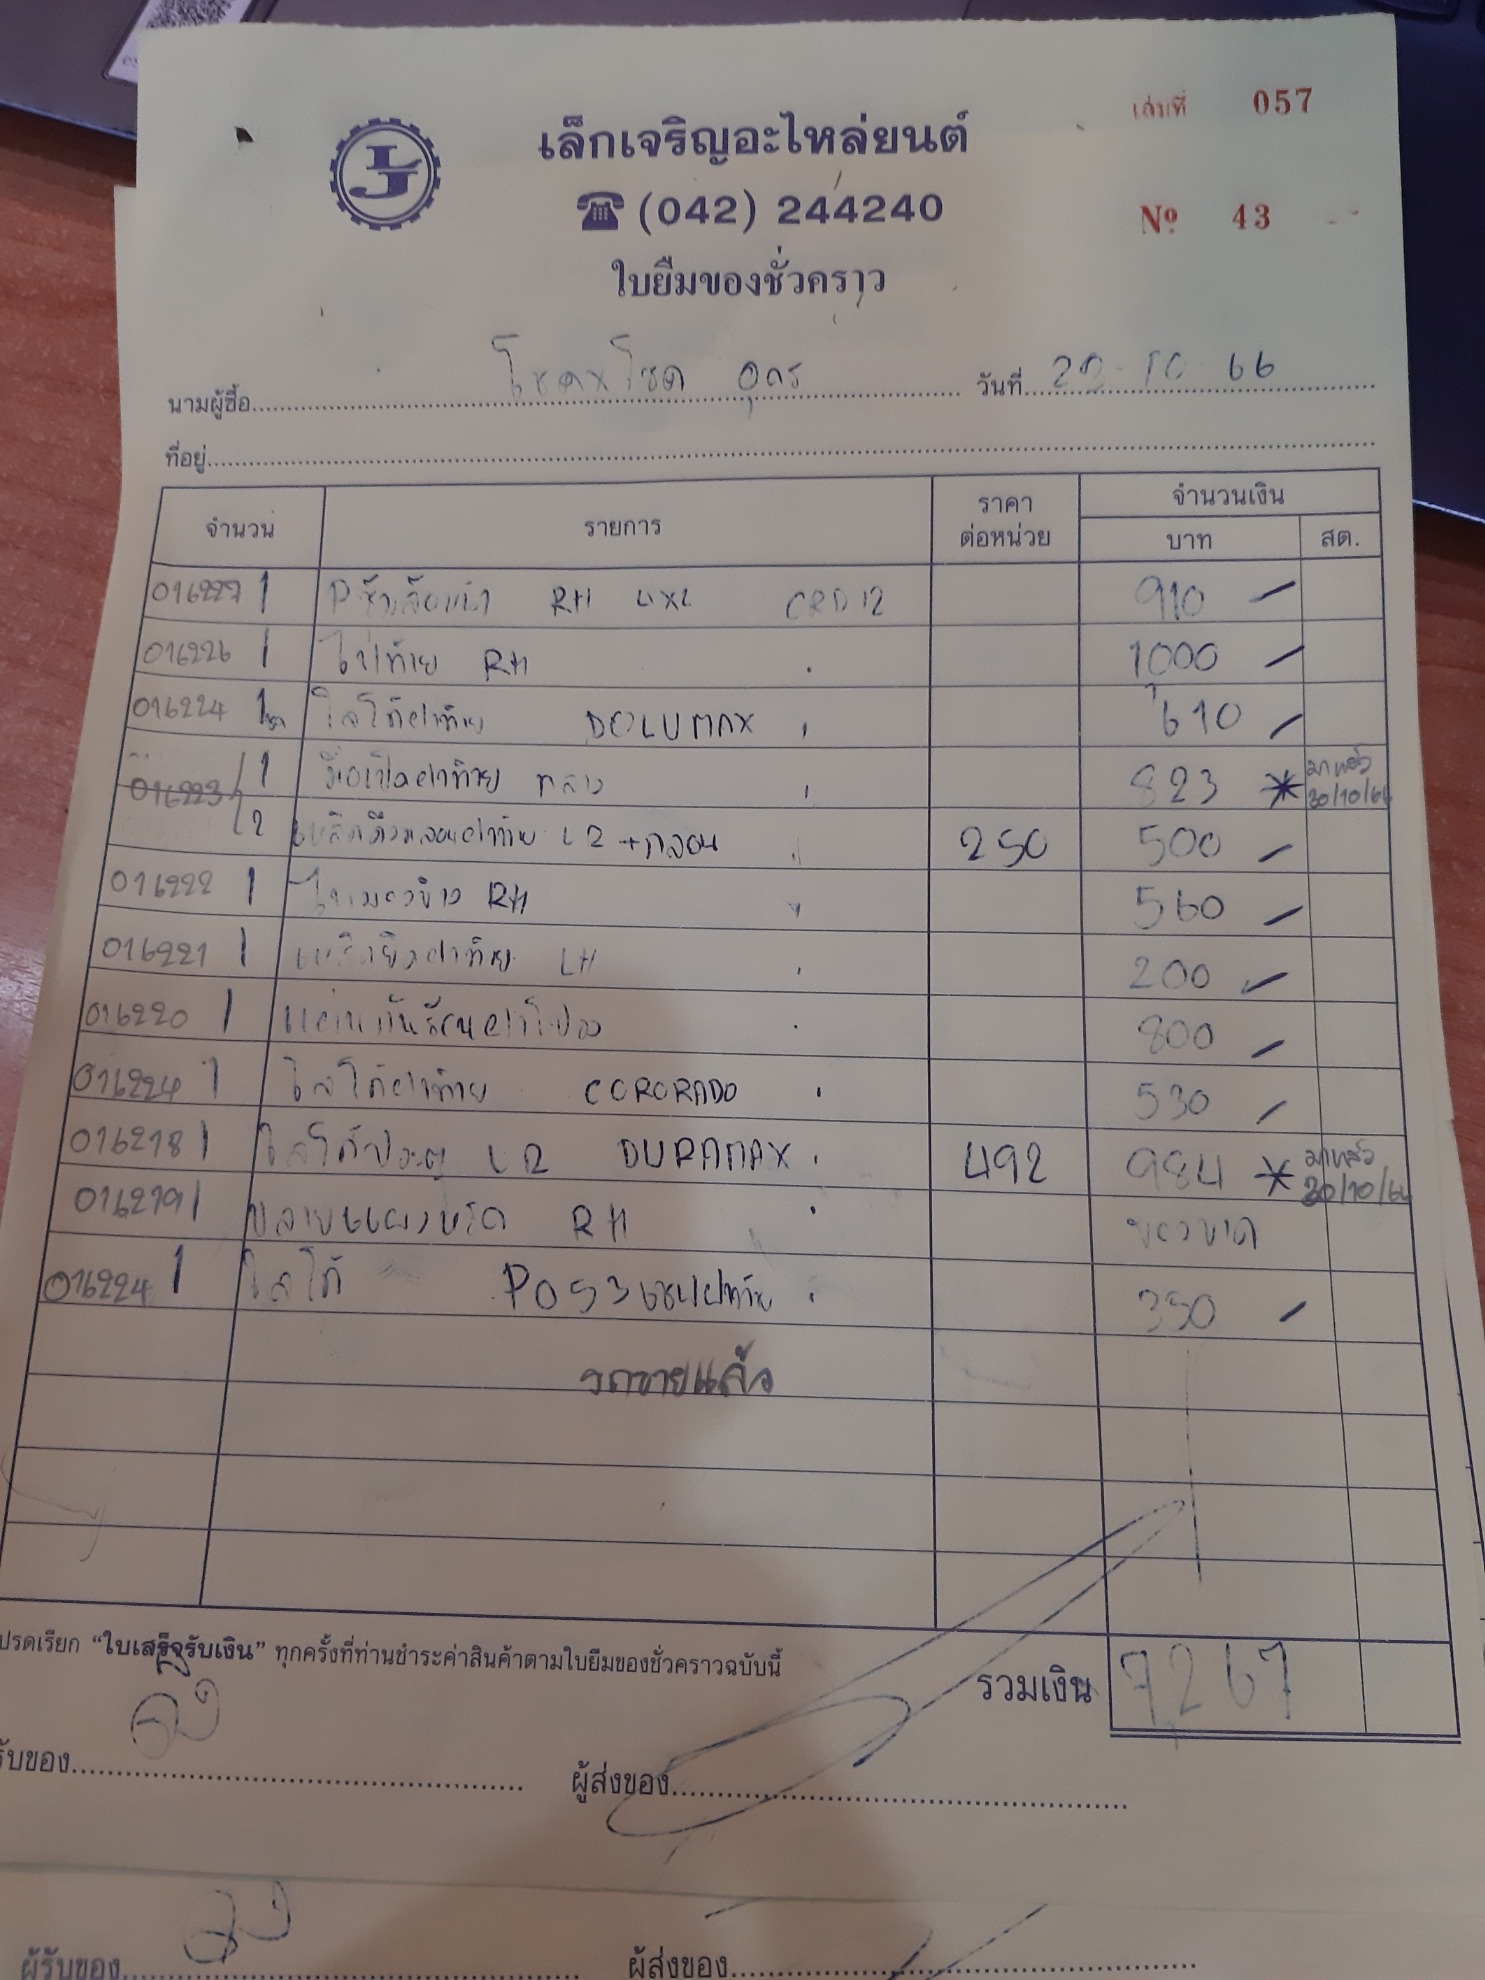 เล่มที่ 057
เล็กเจริญอะไหล่ยนต์
(042) 244240
Nº 43
ใบยืมของชั่วคราว
นามผู้ซื้อ โชคxโชค อุดร วันที่ 29-10-66
ที่อยู่
จำนวน รายการ ราคาต่อหน่วย จำนวนเงิน
บาท สต.
016227 1 RH 4X4 CRD12 910
016226 1 ไฟท้าย RH 1000
016224 1 ชุด โลโก้ฝาท้าย 610
016223 1 มือเปิดฝาท้าย กลาง 823 มาแล้ว 30/10/66
2 LR + กลอน 250 500
016222 1 RH 560
016221 1 ฝาท้าย LH 200
016220 1 800
016224 1 โลโก้ฝาท้าย CORORADO 530
016218 1 โลโก้ประตู LR DURAMAX 492 984 มาแล้ว 30/10/66
016219 1 RH ของขาด
016224 1 โลโก้ 350
รถขายแล้ว
ปรดเรียก “ใบเสร็จรับเงิน” ทุกครั้งที่ท่านชำระค่าสินค้าตามใบยืมของชั่วคราวฉบับนี้
รวมเงิน 7267
รับของ ผู้ส่งของ
ผู้รับของ ผู้ส่งของ